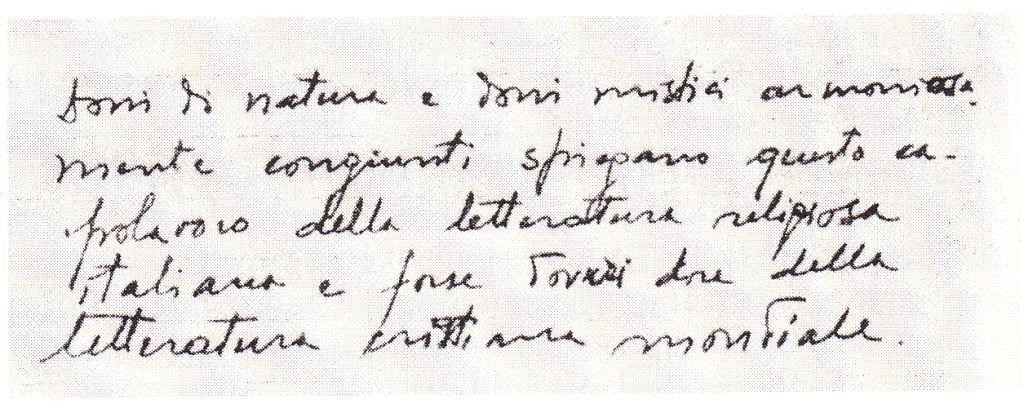 Doni di natura e doni mistici armoniosa-
mente congiunti spiegano questo ca-
polavoro della letteratura religiosa
italiana e forse dovrei dire della
letteratura cristiana mondiale.